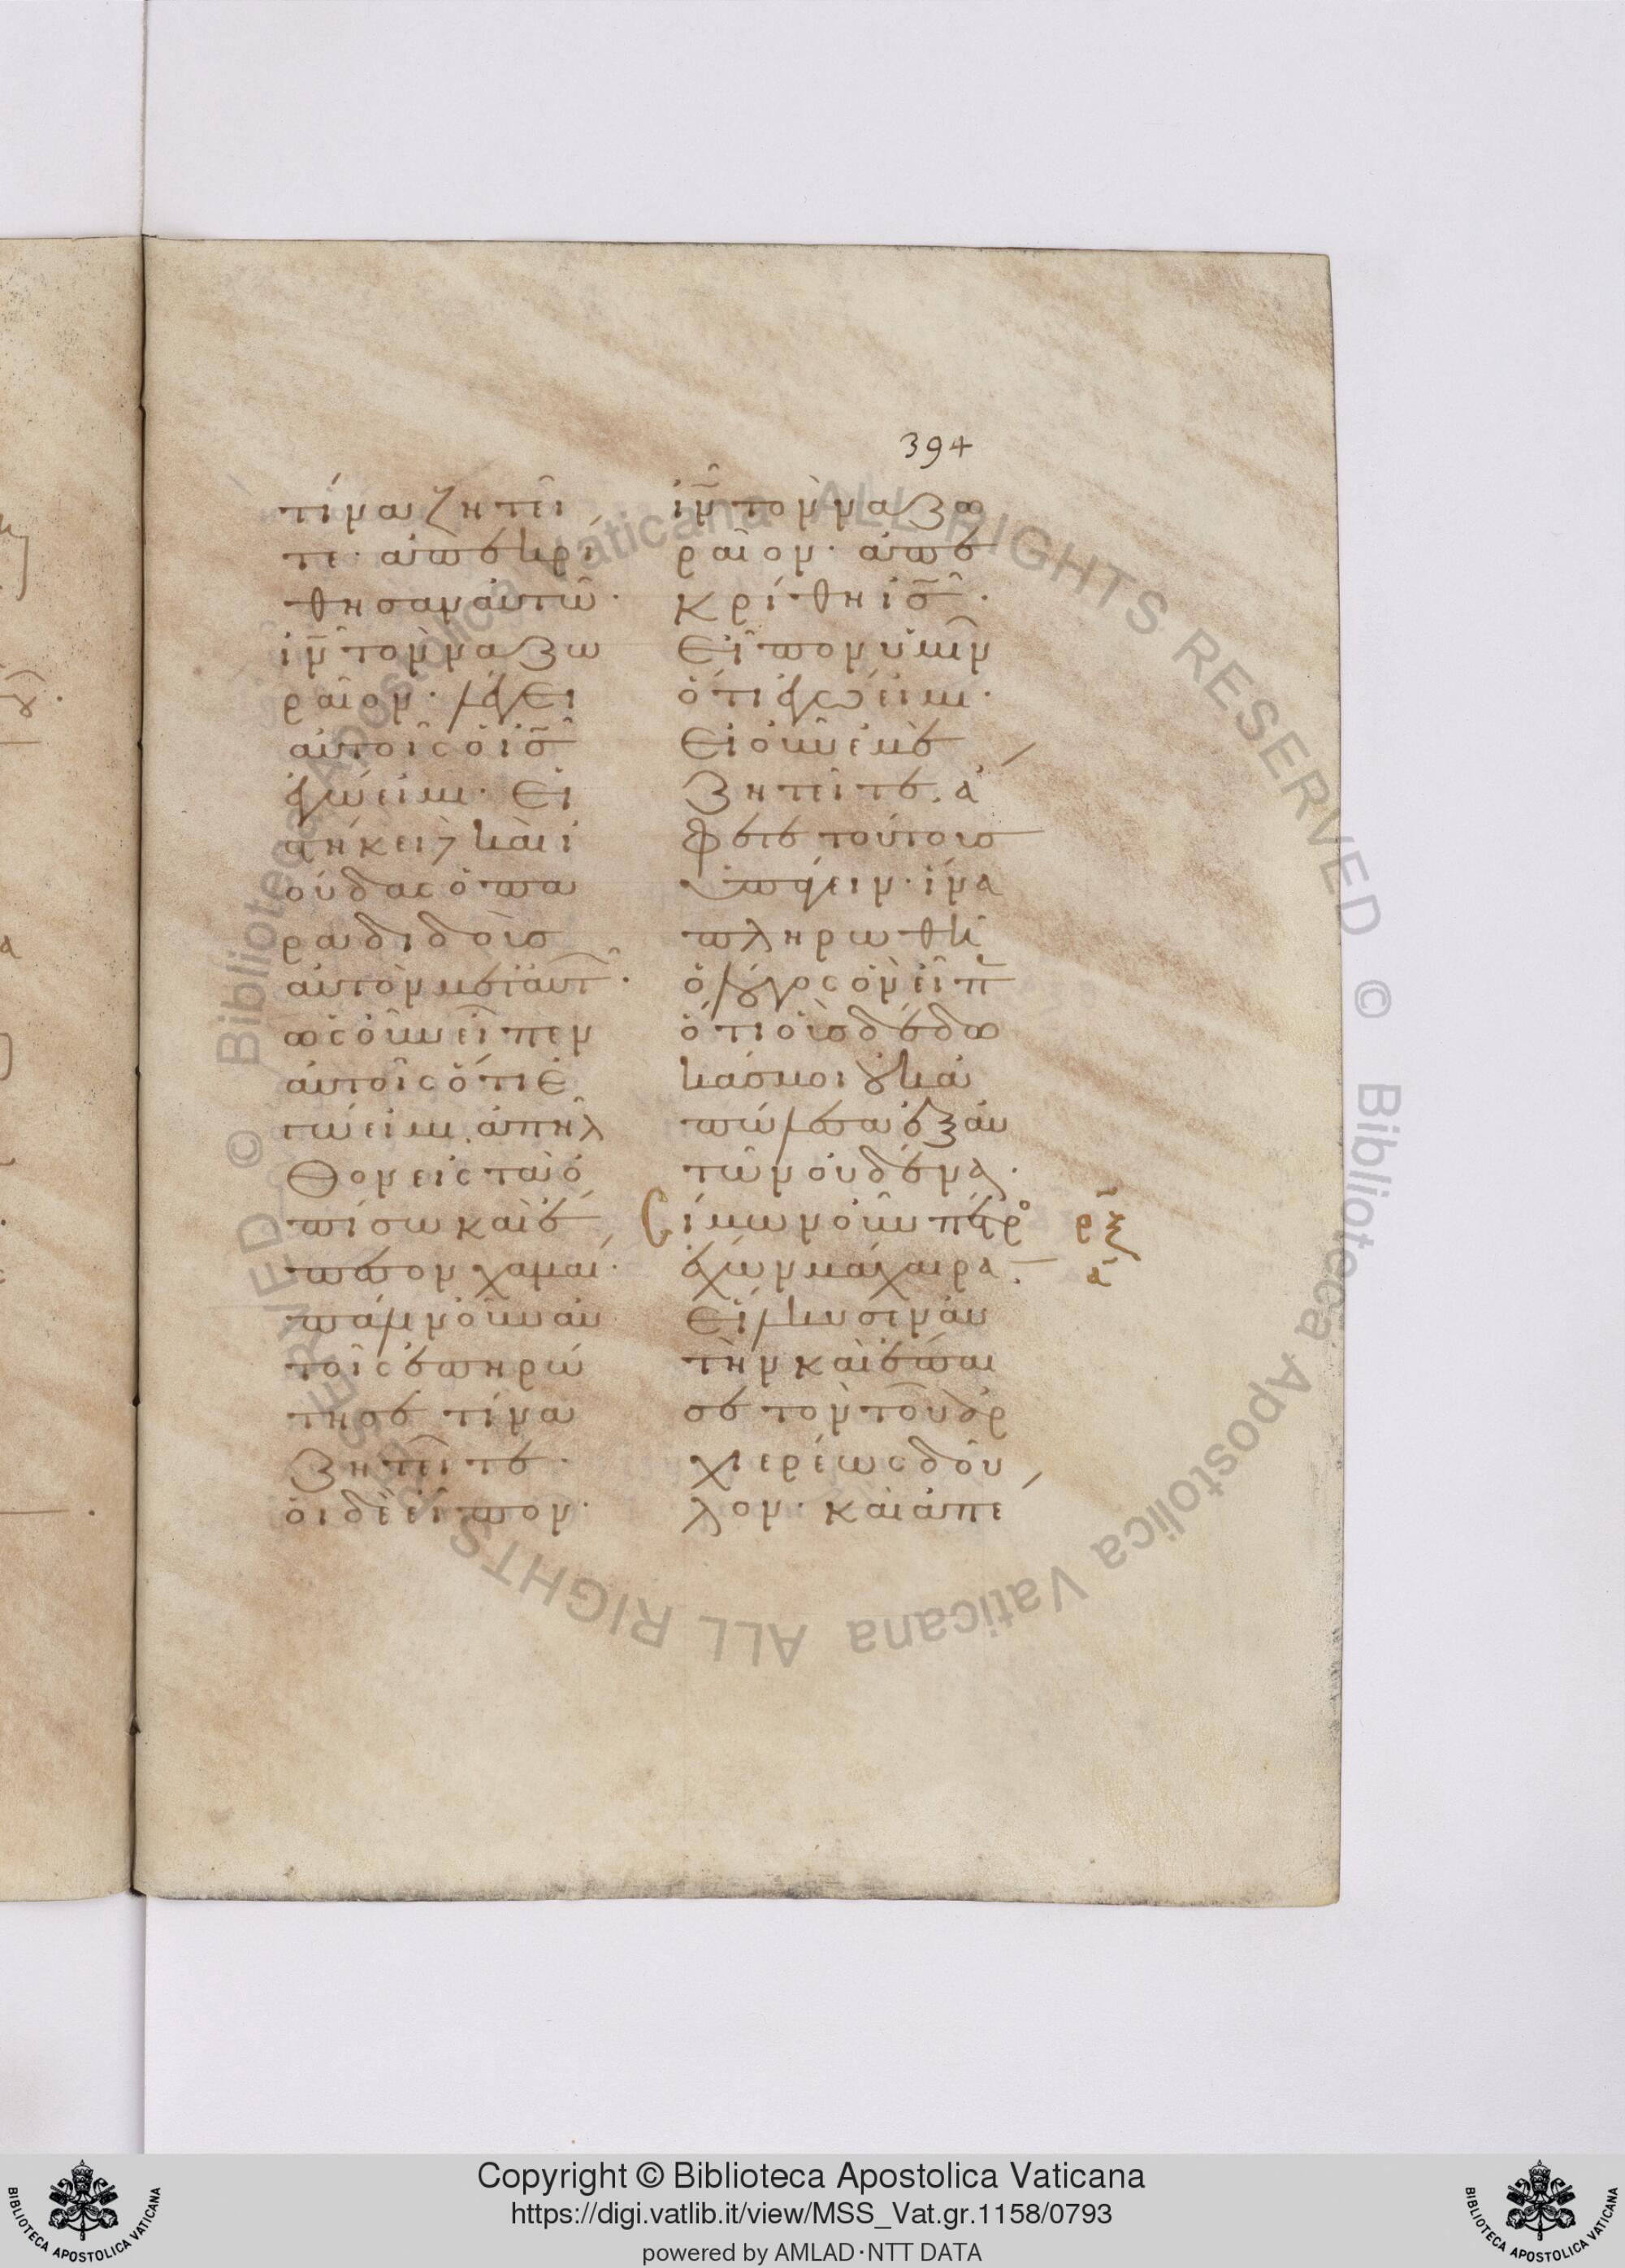 394
τίνα ζητεῖ
τε· ἀπεκρί
θησαν αὐτῶ·
ἰν̅ τὸν ναζω
ραῖον· λέγει
αὐτοῖς ὁ ισ̅
ἐγώ εἰμι· εἱ
στήκει δὲ καὶ ἰ
ούδας ὁ πα
ραδιδοὺσ
αὐτὸν μετ' αὐτ͂·
ὡς οὖν εἶπεν
αὐτοῖς ὅτι ἐ
γώ εἰμι. ἀπῆλ
θον εἰς τὰ ὀ
πίσω καὶ ἔ
πεσον χαμαί·
πάλιν οὖν αὐ
τοῖς ἐπηρώ
τησε τίνα
ζητεῖτε·
οἱ δὲ εἶπον·
ἰν̅ τὸν ναζω
ραῖον· ἀπε
κρίθη ἰσ̅·
εἶπον ὑμῖν
ὅτι ἐγώ εἰμι·
εἰ οὖν ἐμὲ
ζητεῖτε. ἄ
φετε τούτουσ
ὑπάγειν· ἵνα
πληρωθῆ
ὁ λόγος ὃν εἶπε
ὅτι οὓσ δέδω
κάς μοι οὐκ ἀ
πώλεσα ἐξ αὐ
τῶν οὐδένα·
Σίμων οὖν πέτρο
ἔχων μάχαιρα·
εἵλκυσεν αὐ
τὴν καὶ ἔπαι
σε τὸν τοῦ ἀρ
χιερέως δοῦ
λον· καὶ ἀπέ
ρξ
α
Copyright © Biblioteca Apostolica Vaticana
https://digi.vatlib.it/view/MSS_Vat.gr.1158/0793
powered by AMLAD·NTT DATA
BIBLIOTECA APOSTOLICA VATICANA
BIBLIOTECA APOSTOLICA VATICANA
© Biblioteca Apostolica Vaticana ALL RIGHTS RESERVED © Biblioteca Apostolica Vaticana ALL RIGHTS RESERVED